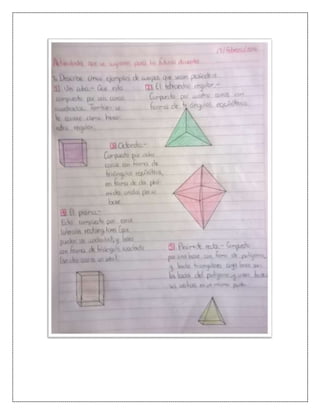 Actividades que se sugieren para los futuros docentes
1. Describe cinco ejemplos de cuerpos que sean poliedros
1) Un cubo.- Que esta
compuesto por seis caras
cuadradas. Tambien se
le conoce como hexa-
edro regular.
2) El tetraedro regular.-
Compuesto por cuatro caras con
forma de triángulos equiláteros.
3) Octaedro.-
Compuesto por ocho
caras con forma de
triángulos equiláteros,
en forma de dos pirá-
mides unidas por su
base.
4) El prisma.-
Esta compuesto por caras
laterales rectangulares (que
pueden ser cuadrados) y bases
con forma de triángulo, cuadrado
5) Pirámide recta.- Compuesto
por una base con forma de polígono
y lados triangulares cuya base son
los lados del polígono y unen todos
sus vértices en un mismo punto.